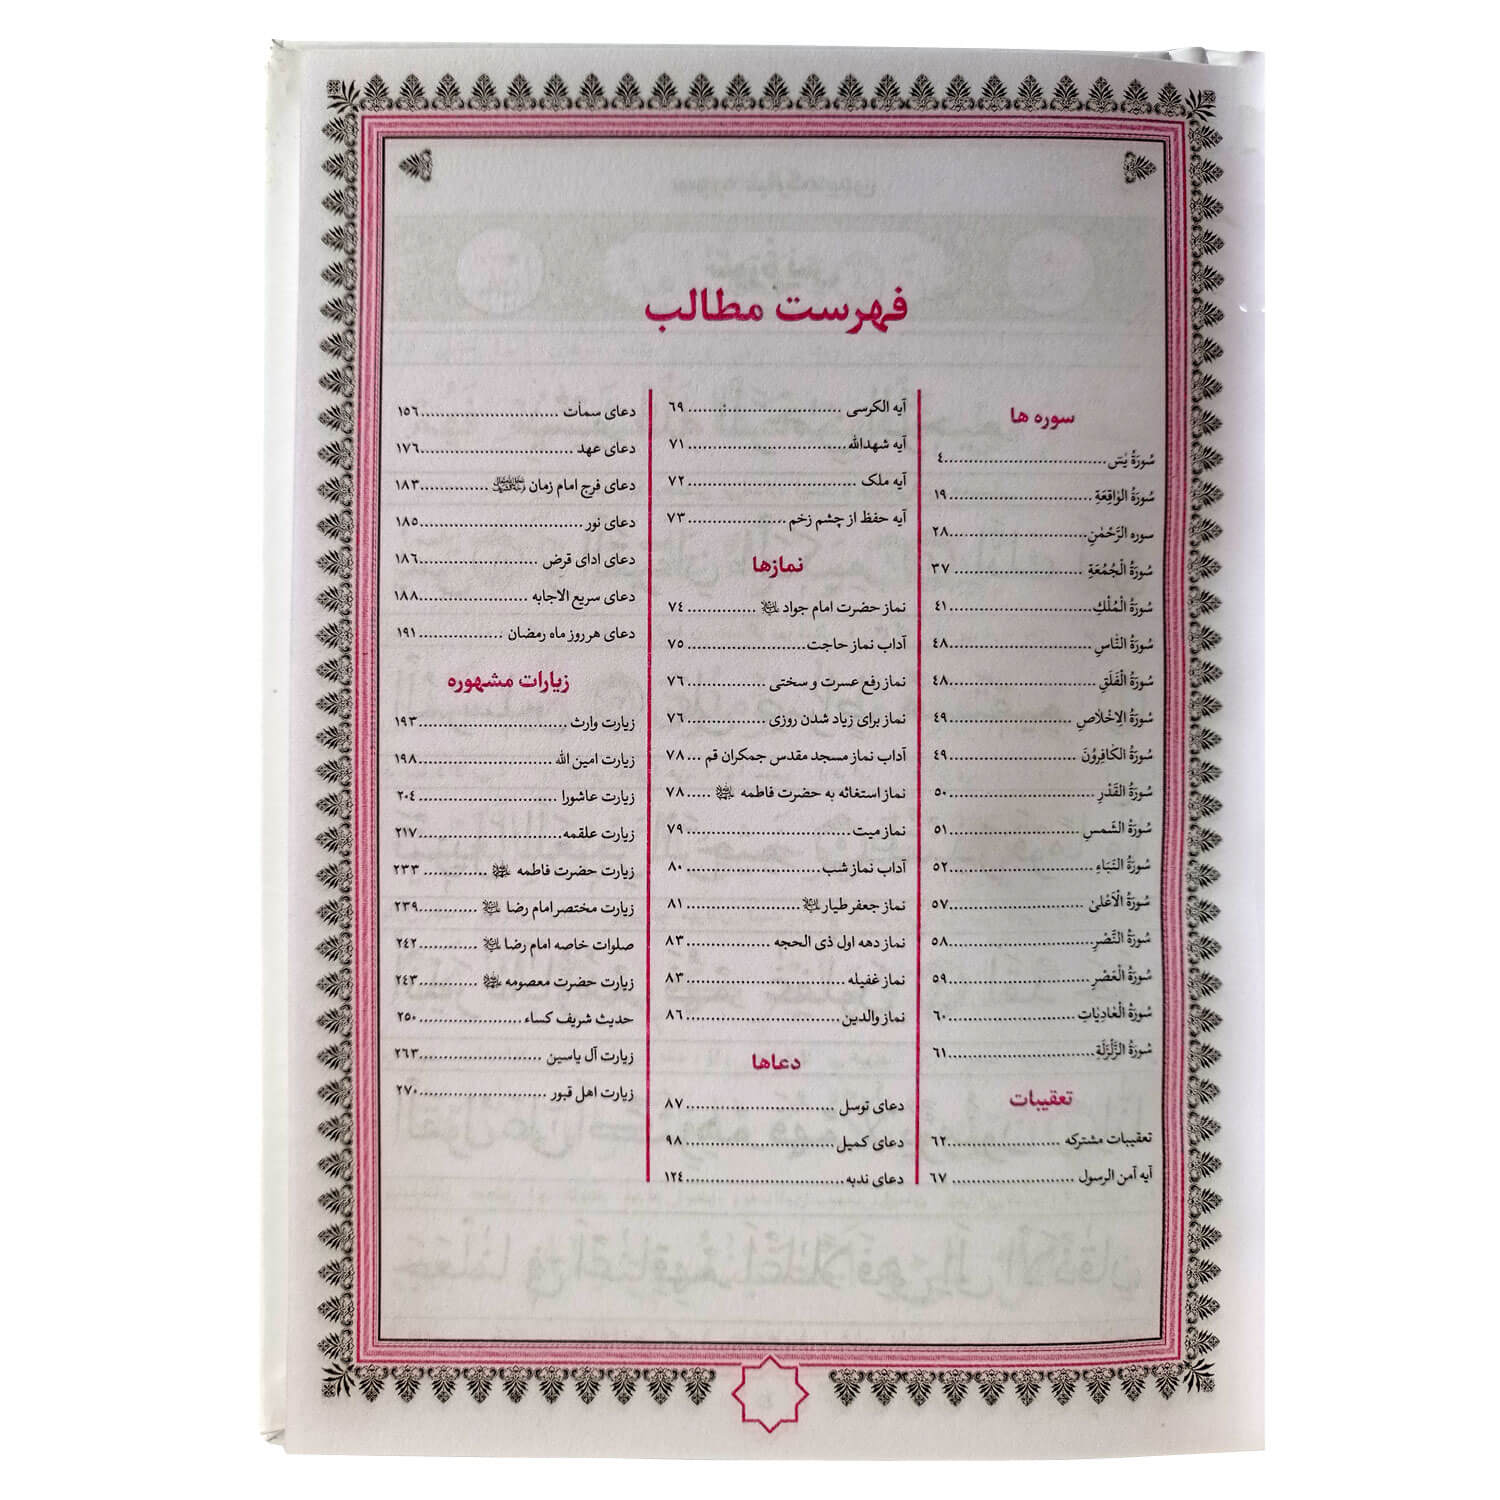 فهرست مطالب
سوره ها
سُورَةُ یٰسٓ ..................................٤
سُورَةُ الْوٰاقِعَةِ ..............................١٩
سوره الرَّحْمٰنِ..............................٢٨
سُورَةُ الْجُمُعَةِ ........................... ٣٧
سُورَةُ الْمُلْكِ..............................٤١
سُورَةُ النّٰاسِ ..............................٤٨
سُورَةُ الْفَلَقِ ..............................٤٨
سُورَةُ الاِخْلاٰصِ ........................٤٩
سُورَةُ الْكٰافِرُونَ ........................٤٩
سُورَةُ الْقَدْرِ ..............................٥٠
سُورَةُ الشَّمسِ ...........................٥١
سُورَةُ النَّبَاءِ ..............................٥٢
سُورَةُ الْاَعْلىٰ ..............................٥٧
سُورَةُ النَّصْرِ..............................٥٨
سُورَةُ الْعَصْرِ..............................٥٩
سُورَةُ الْعٰادِیٰاتِ ...........................٦٠
سُورَةُ الزَّلْزَلَةِ..............................٦١
تعقیبات
تعقیبات مشترکه .....................٦٢
آیه آمن الرسول ..................... ٦٧
آیه الکرسی ........................... ٦٩
آیه شهدالله........................... ٧١
آیه ملک .............................. ٧٢
آیه حفظ از چشم زخم .................. ٧٣
نمازها
نماز حضرت امام جواد علیه السلام ............ ٧٤
آداب نماز حاجت........................ ٧٥
نماز رفع عسرت و سختی ............... ٧٦
نماز برای زیاد شدن روزی ............... ٧٦
آداب نماز مسجد مقدس جمکران قم ... ٧٨
نماز استغاثه به حضرت فاطمه علیها السلام ..... ٧٨
نماز میت.............................. ٧٩
آداب نماز شب........................ ٨٠
نماز جعفر طیار علیه السلام..................... ٨١
نماز دهه اول ذی الحجه ............... ٨٣
نماز غفیله .............................. ٨٣
نماز والدین.............................. ٨٦
دعاها
دعای توسل .............................. ٨٧
دعای کمیل.............................. ٩٨
دعای ندبه..............................١٢٤
دعای سمات ...........................١٥٦
دعای عهد ..............................١٧٦
دعای فرج امام زمان ...............١٨٣
دعای نور ..............................١٨٥
دعای ادای قرض ........................١٨٦
دعای سریع الاجابه .....................١٨٨
دعای هر روز ماه رمضان ............... ١٩١
زیارات مشهوره
زیارت وارث ...........................١٩٣
زیارت امین الله ........................١٩٨
زیارت عاشورا ...........................٢٠٤
زیارت علقمه...........................٢١٧
زیارت حضرت فاطمه علیها السلام ............ ٢٣٣
زیارت مختصر امام رضا علیه السلام ............٢٣٩
صلوات خاصه امام رضا علیه السلام ............٢٤٢
زیارت حضرت معصومه علیها السلام ............٢٤٣
حدیث شریف کساء.....................٢٥٠
زیارت آل یاسین ........................٢٦٣
زیارت اهل قبور ........................٢٧٠